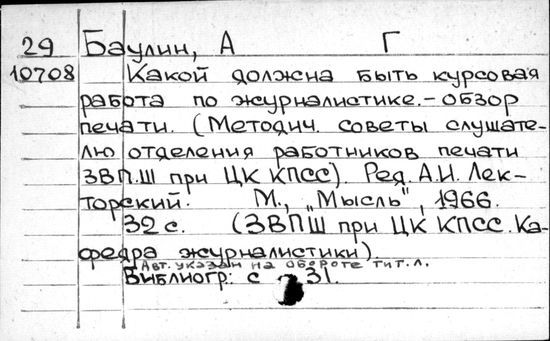 29 Баулин, А Г
10708 Какой должна быть курсовая
работа по журналистике.-обзор
печати. (Методич. советы слушате-
лю отделения работников печати
ЗВП.Ш при ЦК КПСС). Ред. А.И. Лек-
торский. М., „Мысль", 1966.
32 с. (ЗВПШ при ЦК КПСС. Ка-
федра журналистики)
Авт. указан на обороте тит. л.
Библиогр: с 31.